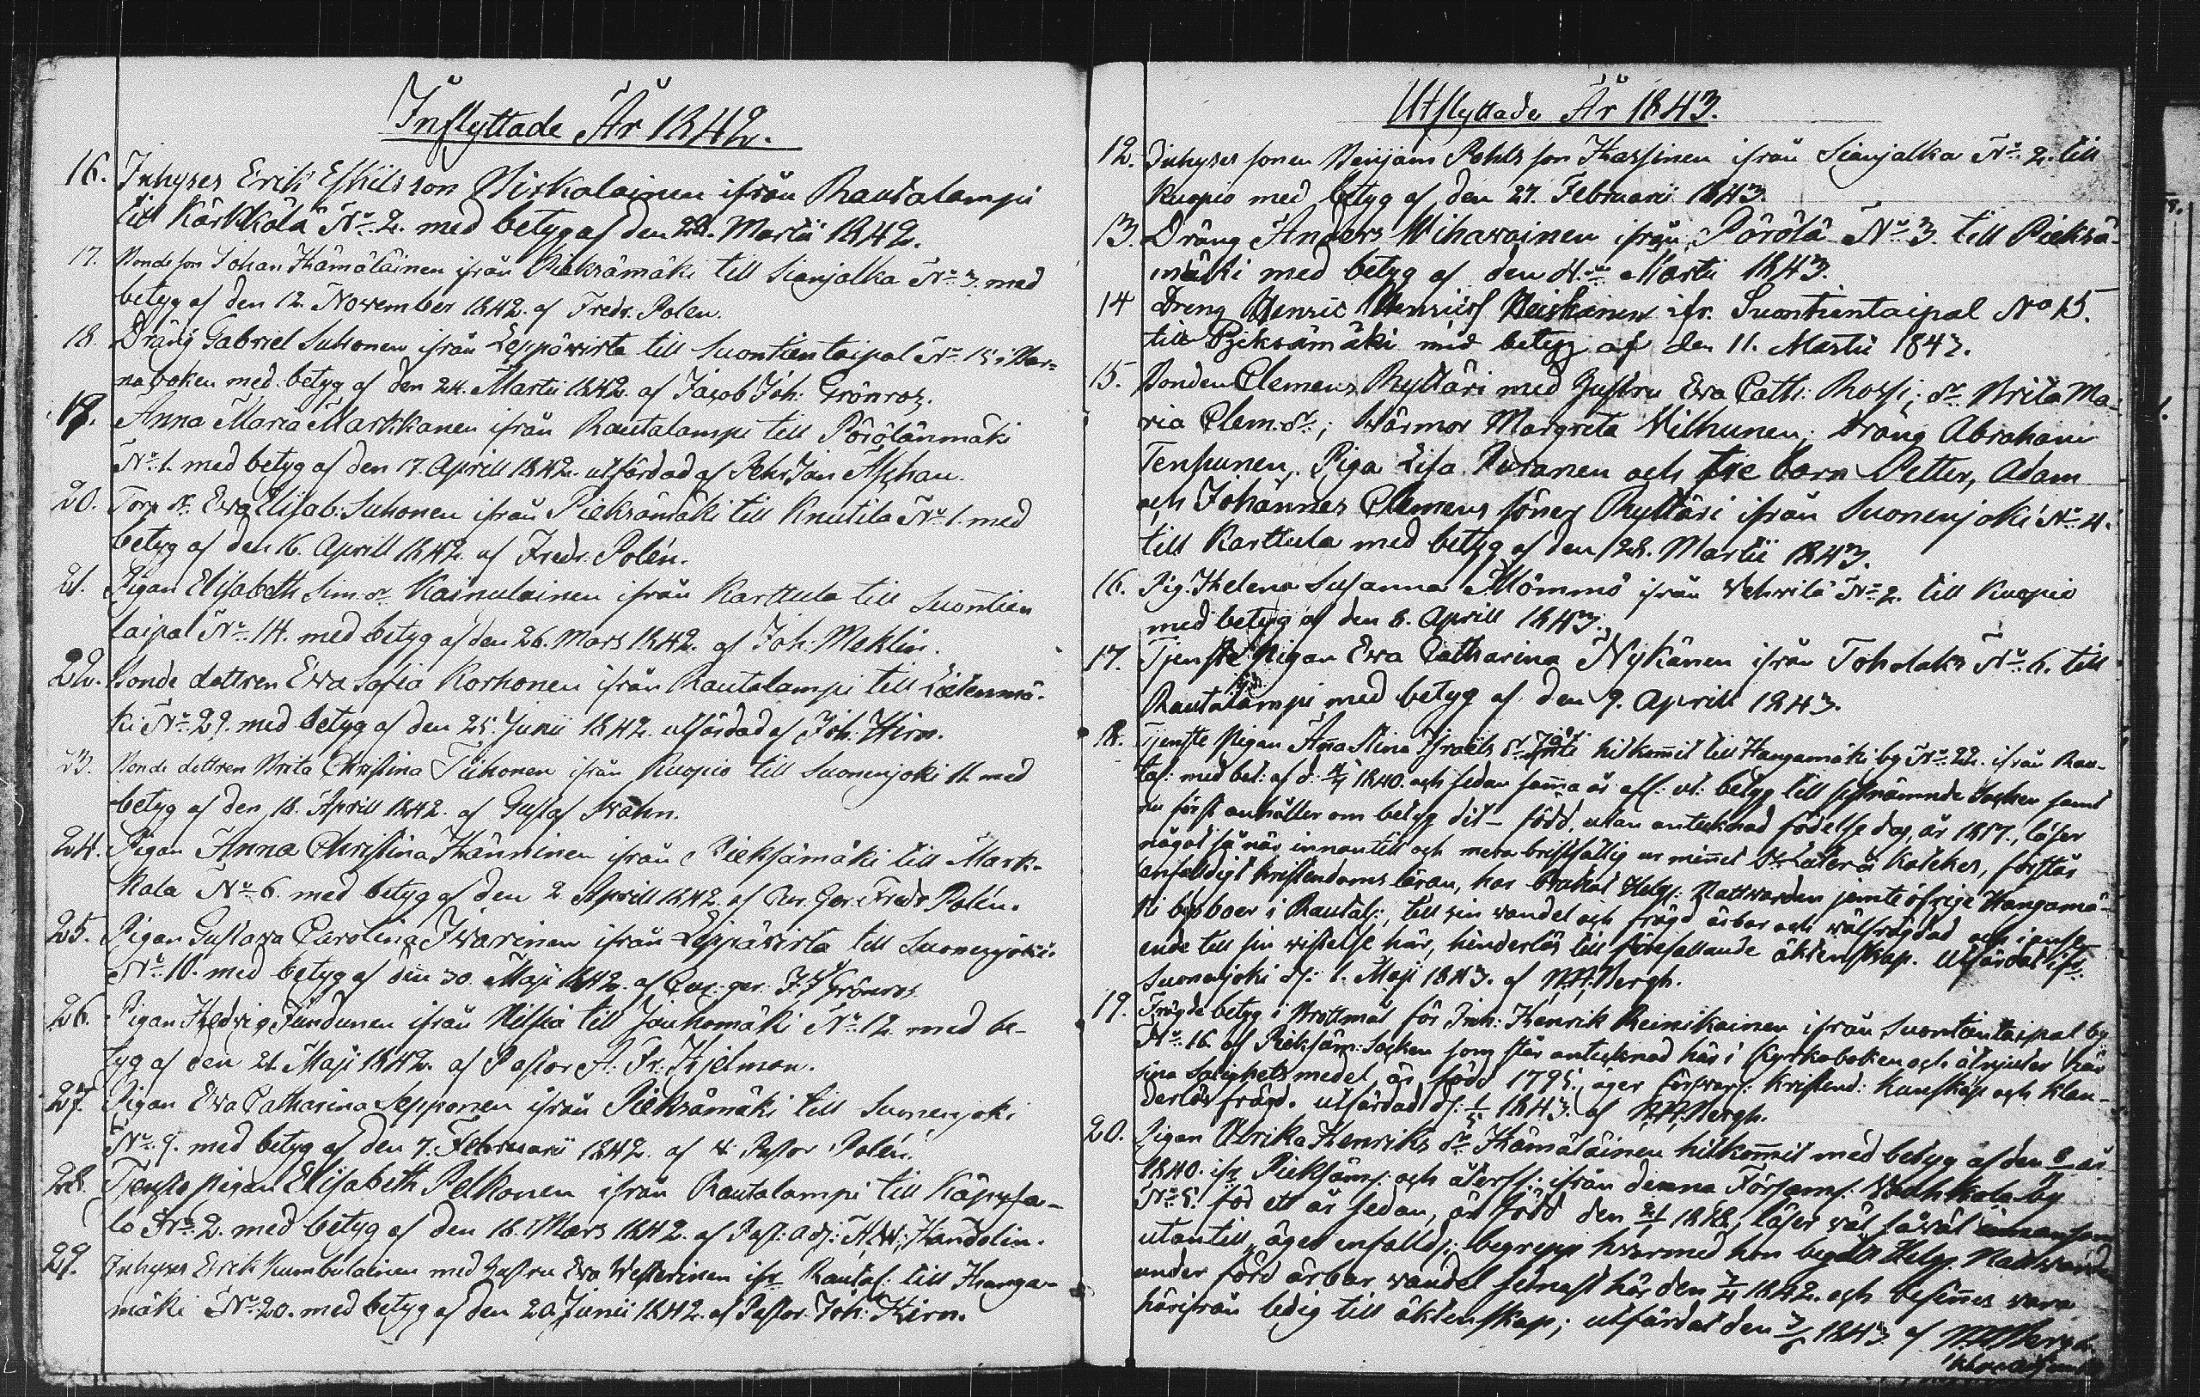 Inflyttade År 1842.
16. Inhyses Erik Eskils son Pirkalainen ifrån Rautalampi
till Kärkkälä No 2. med betyg af den 28. Martii 1842.
17. Bonde son Johan Hämäläinen ifrån Pieksämäki till Sianjalka No 3. med
betyg af den 12. November 1842. af Fredr. Polen.
18. Dräng Gabriel Suhonen ifrån Leppävirta till Suontientaipal No 15 i Bar-
naboken med betyg af den 24. Martii 1842. af Jacob Joh: Grönros.
19. Anna Maria Markkanen ifrån Rautalampi till Pörölänmäki
No 1. med betyg af den 17. Aprill 1842. utfärdad af Pehr Jan Aschan.
20. Torp dr Eva Elisab: Suhonen ifrån Pieksämäki till Knutila No 1. med
betyg af den 16. Aprill 1842. af Fredr. Polén.
21. Pigan Elisabeth Sim. dr Kainulainen ifrån Karttula till Suontien
taipal No 14. med betyg af den 26. Mars 1842. af Joh: Meklin.
22. Bonde dottren Eva Sofia Korhonen ifrån Rautalampi till Lietenmä-
ki No 29. med betyg af den 25. Junii 1842. utfärdad af Joh: Hirn.
23. Bonde dottren Brita Christina Tiihonen ifrån Kuopio till Suonenjoki 11. med
betyg af den 18. Aprill 1842. af Gustaf Wahn.
24. Pigan Anna Christina Hänninen ifrån Pieksämäki till Mark-
kala No 6. med betyg af den 2. Aprill 1842. af Cur. Ger. Fredr Polén.
25. Pigan Gustava Carolina Iivarinen ifrån Leppävirta till Suonenjoki
No 10. med betyg af den 30. Maji 1842. af Cur: ger: J J Grönros
26. Pigan Hedvig Jundunen ifrån Nilsiä till Jauhomäki No 12. med be-
tyg af den 21. Maji 1842. af Pastor A: Fr: Hjelman.
27. Pigan Eva Catharina Sepponen ifrån Pieksämäki till Suonenjoki
No 9. med betyg af den 7. Februarii 1842. af V. Pastor Polén.
28. Tjenste pigan Elisabeth Pelkonen ifrån Rautalampi till Käpysa-
lo No 2. med betyg af den 18. Mars 1842. af Past: adj: Handolin.
29. Inhyses Erik Kumbulainen med hustru Eva Westerinen ifr Rautal: till Hanga-
mäki No 20. med betyg af den 20. Junii 1842. af Pastor Joh: Hirn.
Utflyttade År 1843.
12. Inhyses sonen Benjam Pehls son Hassinen ifrån Sianjalka No 2. till
Kuopio med betyg af den 27. Februarii 1843.
13. Dräng Anders Wihavainen ifrån Pörölä No 3. till Pieksä-
mäki med betyg af den 4. Martii 1843.
14 Dreng Henric Henricss Heiskanen ifr. Suontientaipal No 15.
till Pjeksämäki med betyg af den 11. Martii 1843.
15. Bonden Clemens Ryttäri med hustru Eva Cath: Rossi; dr Brita Ma-
ria Clem: dr; Svärmor Margreta Vilhunen; Dräng Abraham
Tenhunen, Piga Lisa Puranen och tre barn Petter, Adam
och Johannes Clemens söner Ryttäri ifrån Suonenjoki No 4.
till Karttula med betyg af den 28. Martii 1843.
16. Pig. Helena Susanna Mömmö ifrån Vehvilä No 2. till Kuopio
med betyg af den 8. Aprill 1843.
17. Tjenste Pigan Eva Catharina Nykänen ifrån Toholaks No 6. till
Rautalampi med betyg af den 9. Aprill 1843.
18. Tjenste Pigan Anna Stina Israels dr hitkommit till Hangamäki by No 22. ifrån Rau-
tal: med bet: af d: 1840. och sedan samma år utt: betyg till sistnämnde Socken samt
nu först anhåller om betyg dit – född, utan antecknad födelse dag, år 1817, läser
något så när innantill och mera bristfällig ur minnet katekes, förstår
enfaldigt kristendoms läran, har brukat Helg: Nattvarden jemte öfrige Hangamä-
ki by boer i Rautal:, till sin vandel och frägd ärbar och välfrägdad och i anse-
ende till sin vistelse här, hinderlös till förefallande äktenskap. Utfärdat ifr:
Suonenjoki d: 1. Maji 1843. af Bergh.
19. Frägde betyg i Brottmål för Inh: Henrik Reinikainen ifrån Suontientaipal by
No 16 af Pieksäm: Socken som står antecknad här i Kyrkoboken och åtnjuter här
sina Salighets medel, är född 1795, äger försvarl: Kristend: kunskap och klan-
derlös frägd. utfärdad d: 1843. af Bergh.
20. Pigan Ulrika Henriks dr Hämäläinen hitkommit med betyg af den år
1840. ifr Pieksäm: och återfl: ifrån denna Församl: Vauhkala by
No 5. för ett år sedan, är född den 1822, läser väl såväl innan som
utantill, äger enfalld: begrepp hvarmed hon begått Helg. Nattvarden
under förd ärbar vandel sednast här den 1842. och befinnes vara
härifrån ledig till äktenskap; utfärdat den 1843 af Bergh